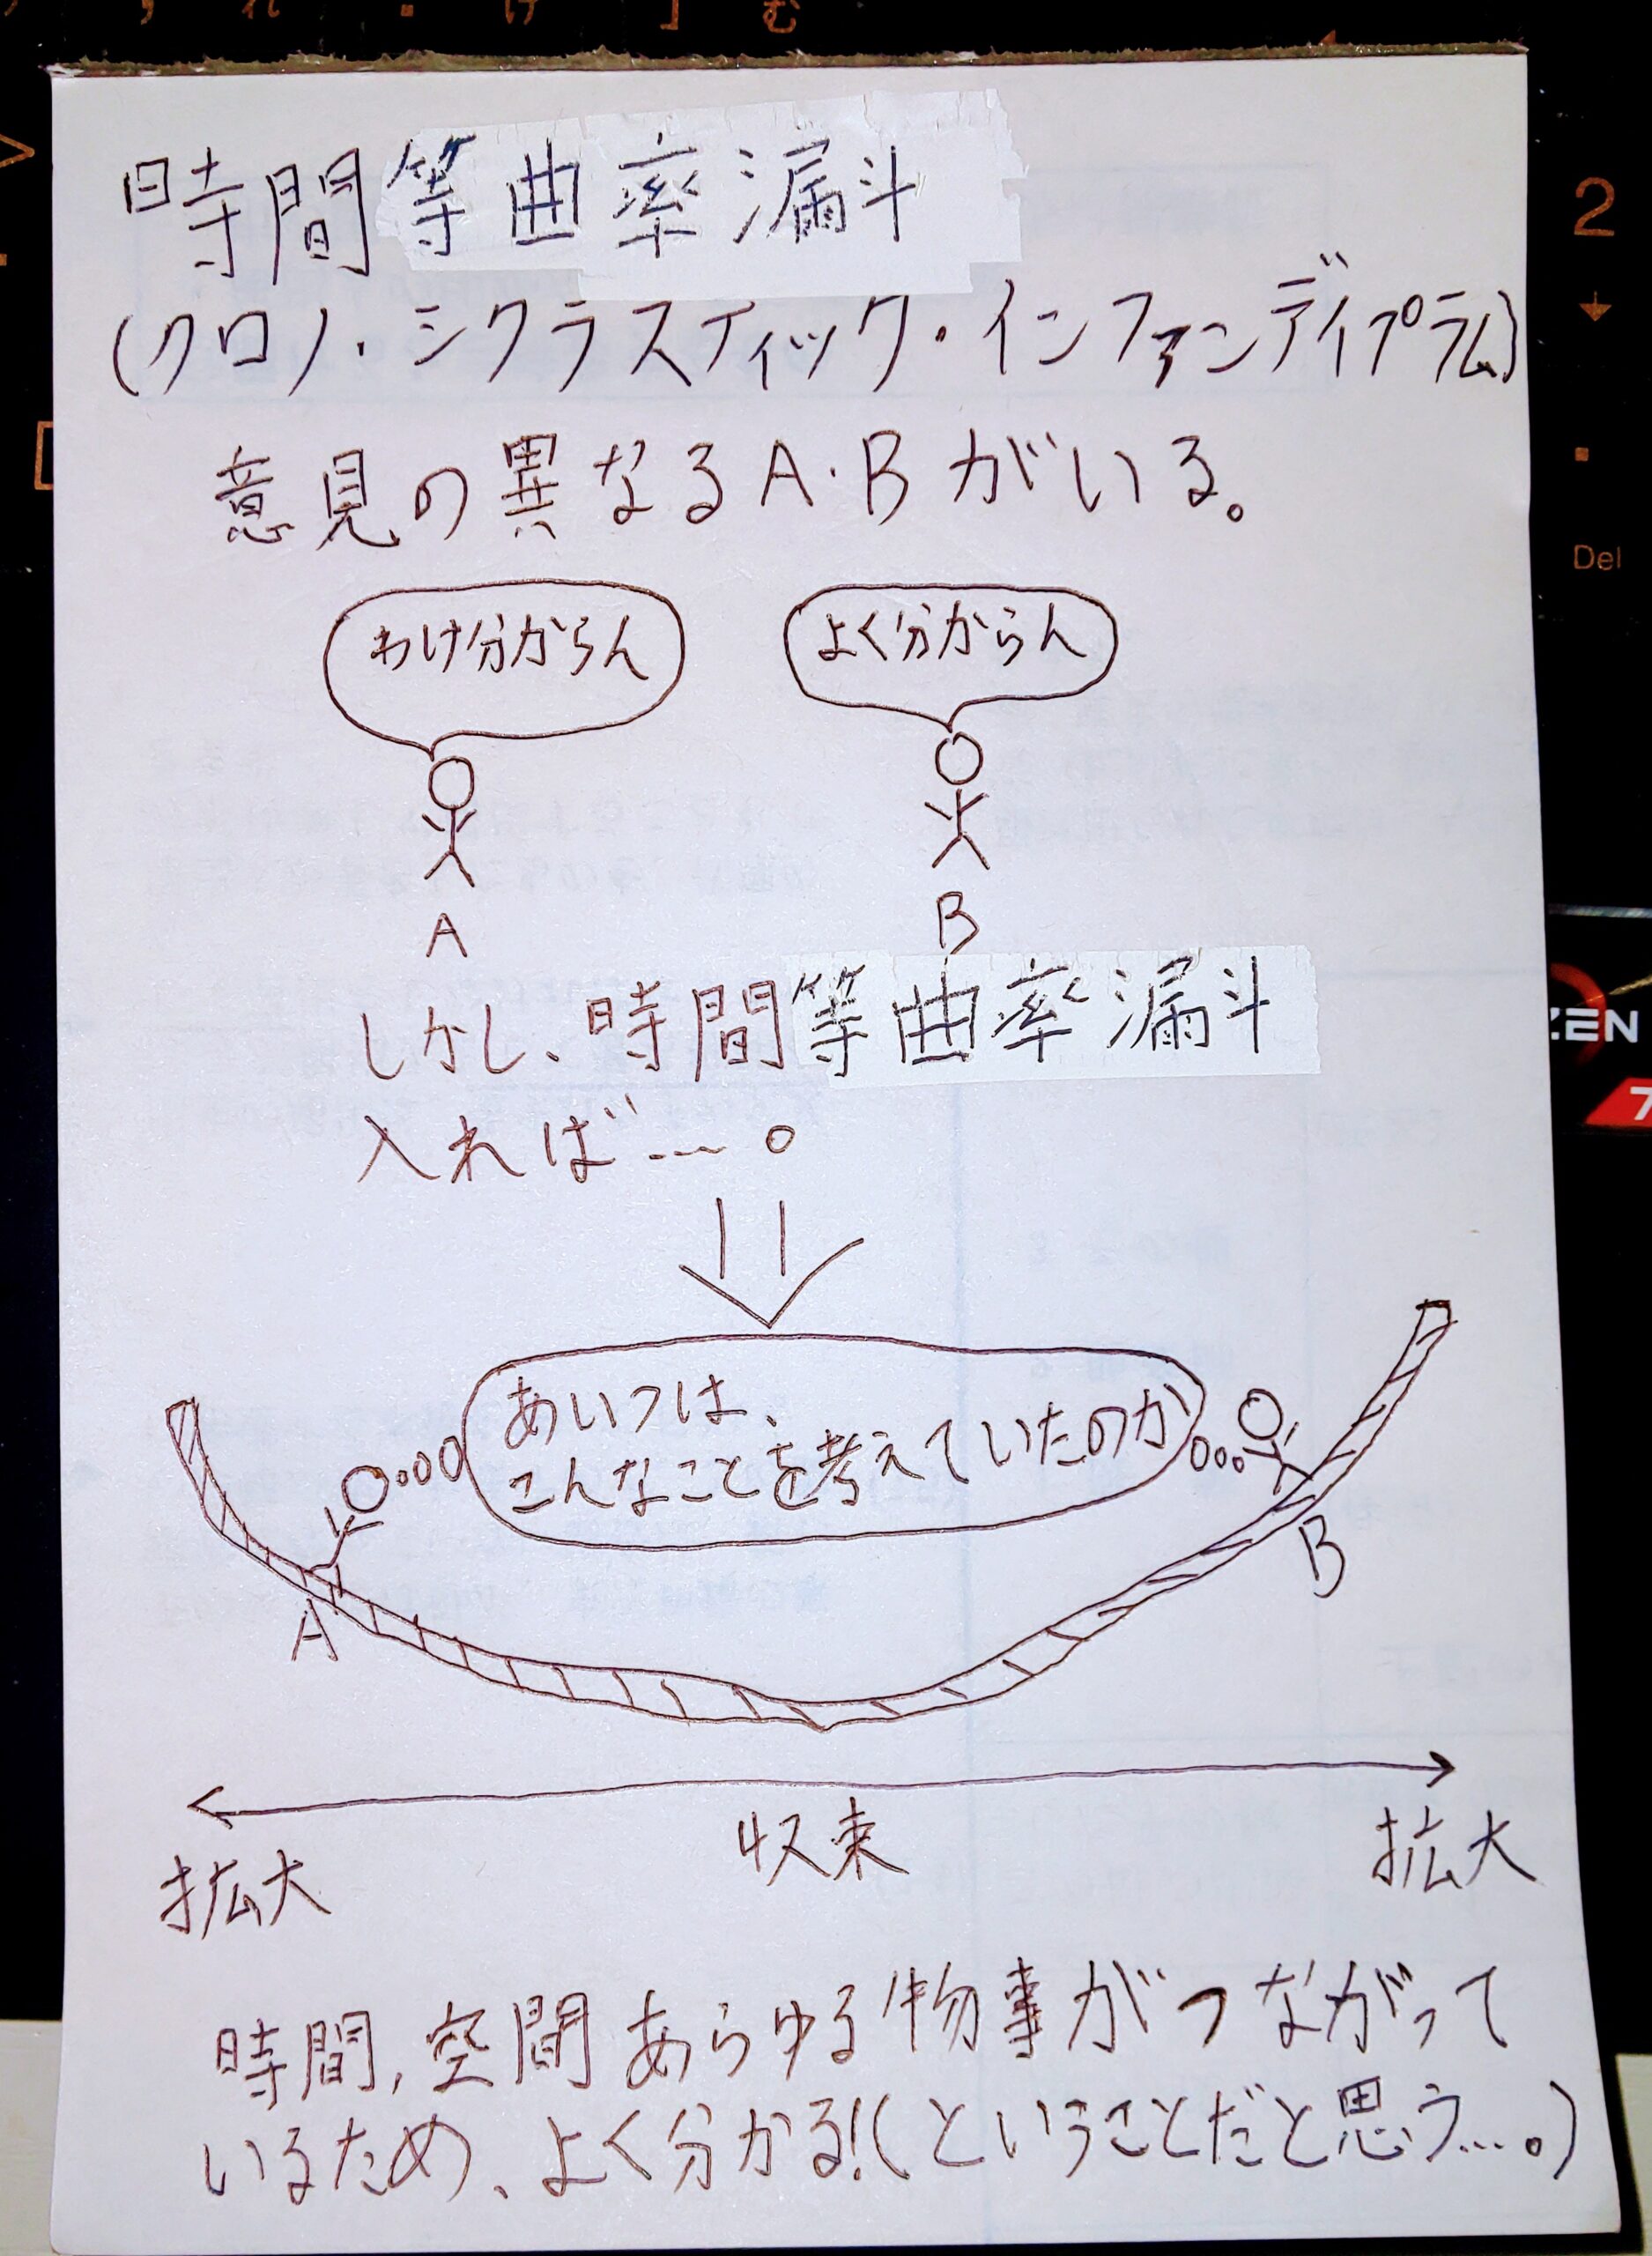 時間等曲率漏斗
(クロノ・シクラスティック・インファンディプラム)
意見の異なるA・Bがいる。
わけ分からん
よく分からん
A
B
しかし、時間等曲率漏斗
入れば…。
あいつは、
こんなことを考えていたのか
A
B
拡大
収束
拡大
時間,空間あらゆる物事がつながって
いるため、よく分かる!(ということだと思う…。)
2
Del
ZEN
7
む
け